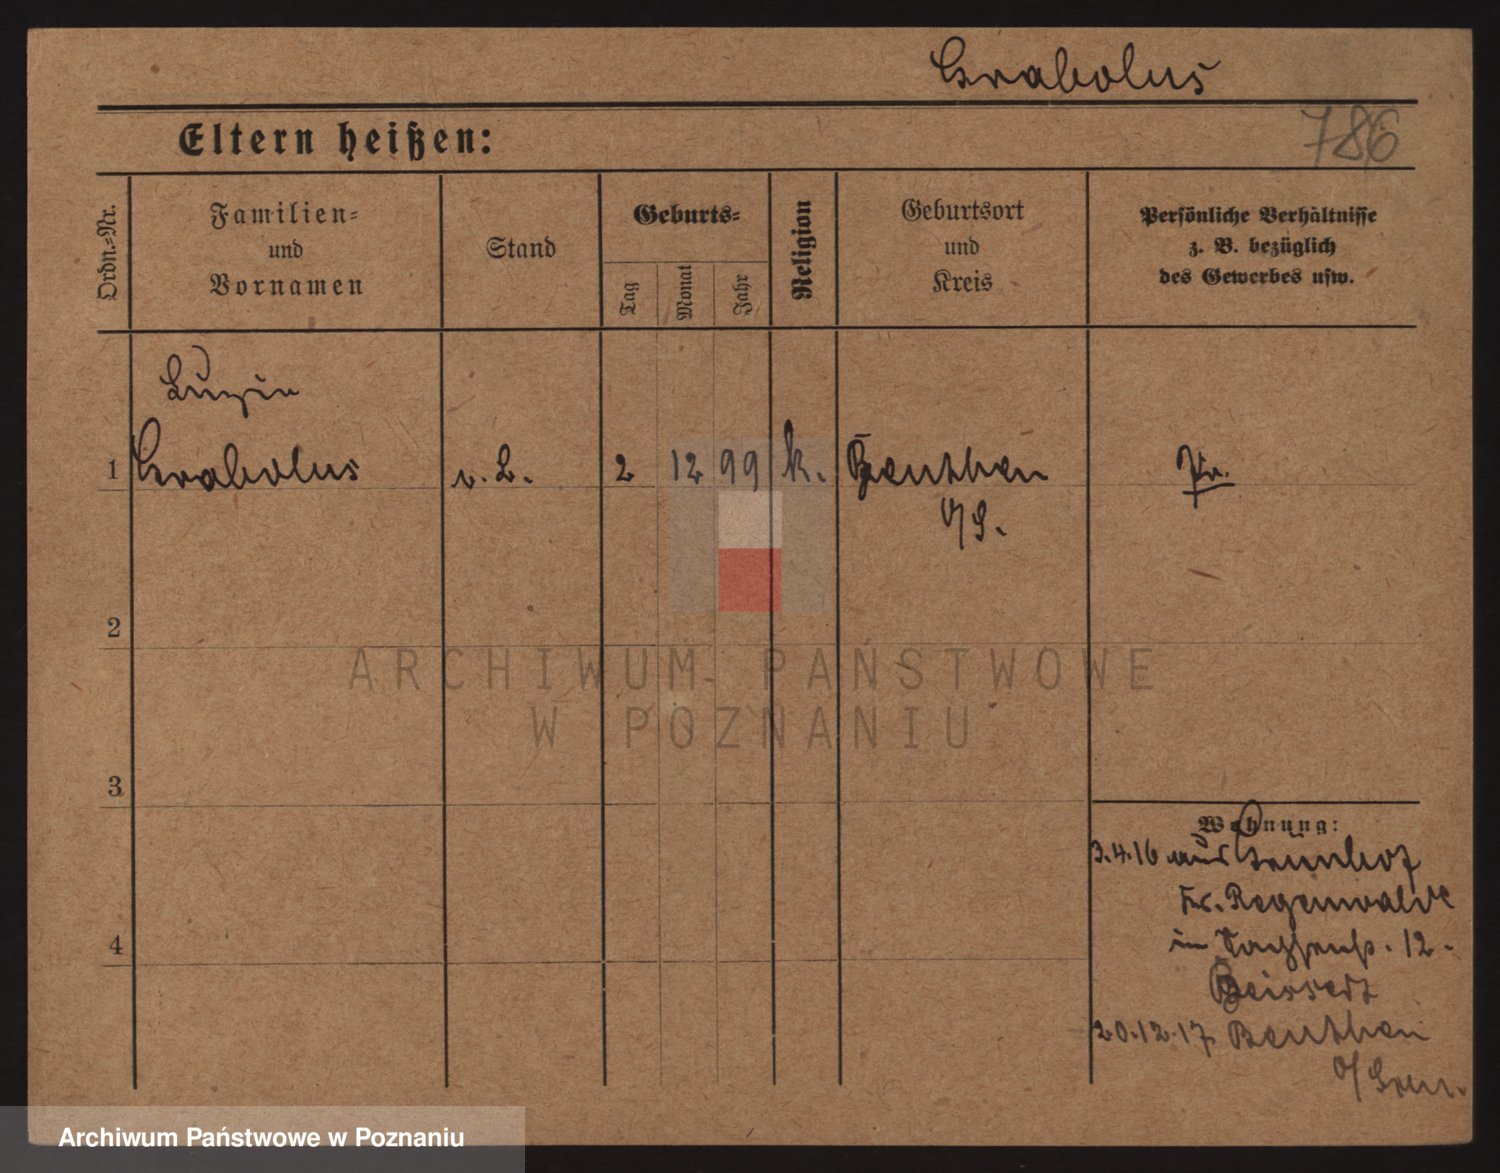 Grabolus
786
Eltern heißen:
Ordn.-Nr.
Familien-
und
Vornamen
Stand
Geburts-
Tag
Monat
Jahr
Religion
Geburtsort
und
Kreis
Persönliche Verhältnisse
z. B. bezüglich
des Gewerbes usw.
Luzie
1 Grabolus v. L. 2 12 99 k. Beuthen Pr.
O/S.
2
3
4
Wohnung:
3.4.16 aus
Kr. Regenwalde
in 12.
20.12.17 Beuthen
ARCHIWUM PAŃSTWOWE
W POZNANIU
Archiwum Państwowe w Poznaniu